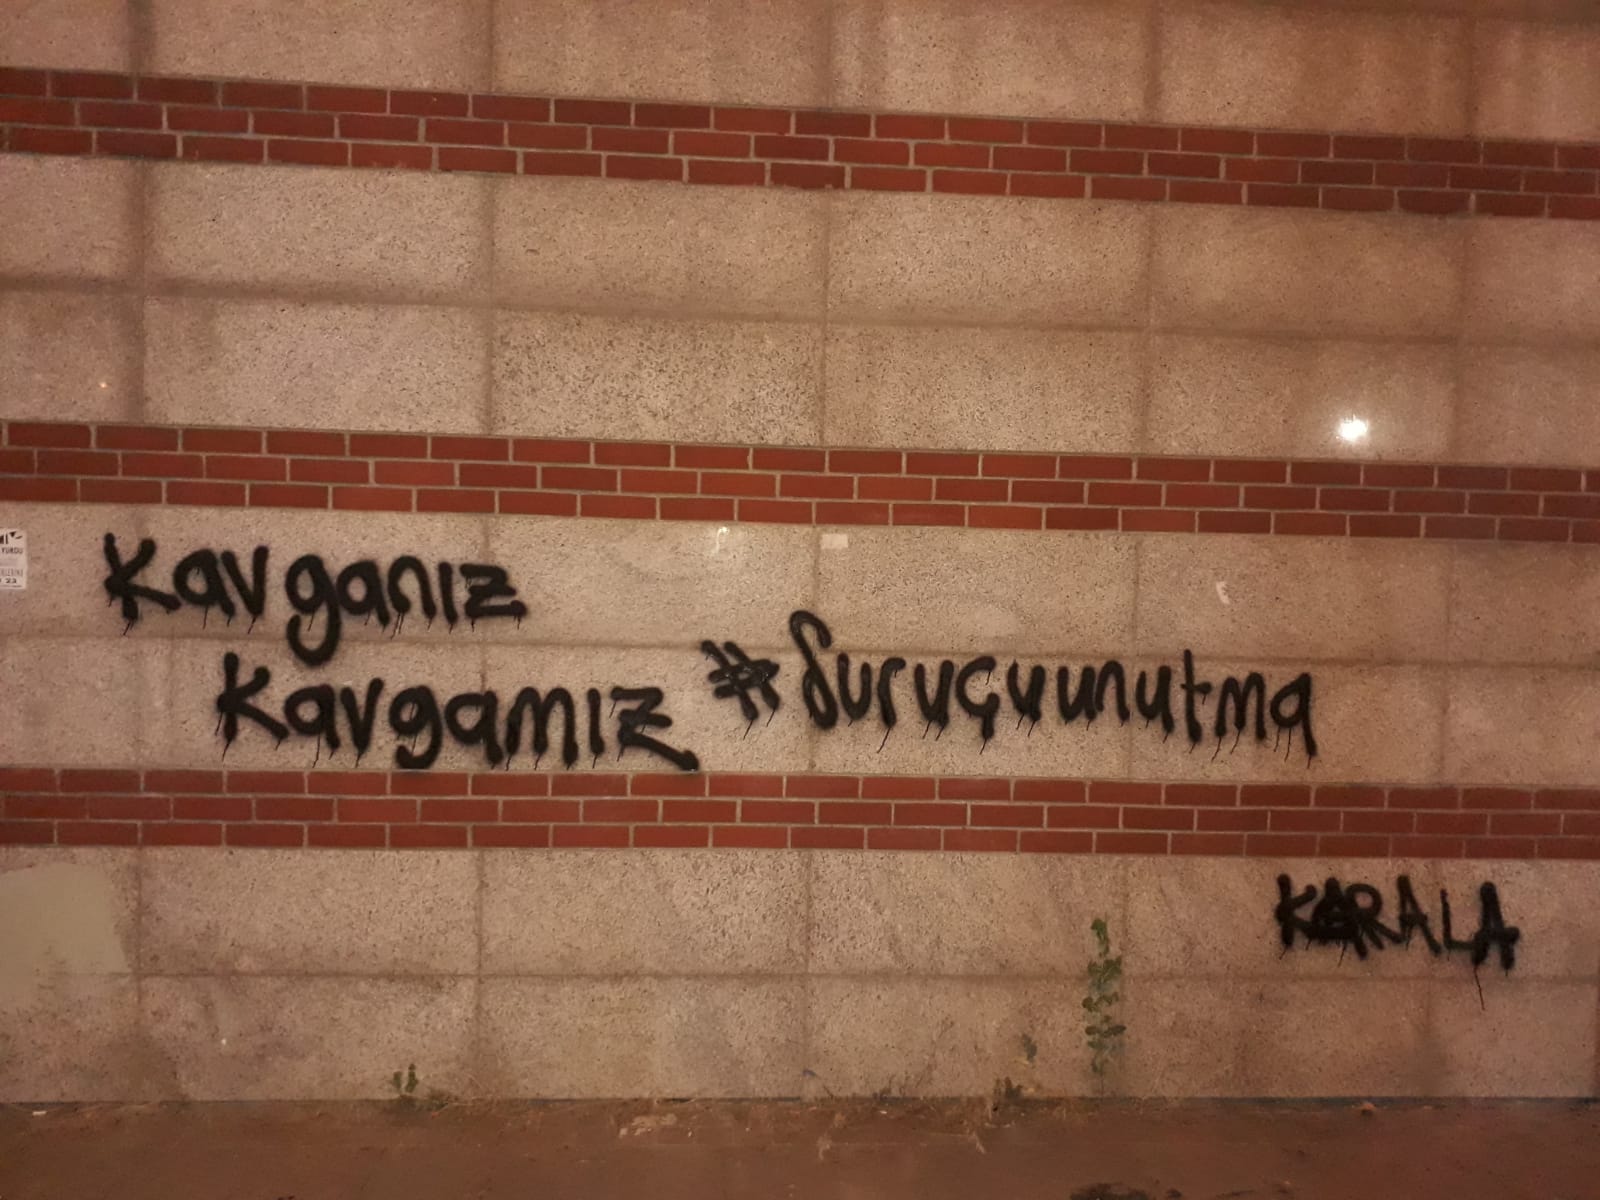 Kavganız
Kavgamız #Suruçuunutma
KARALA
YURDU
23